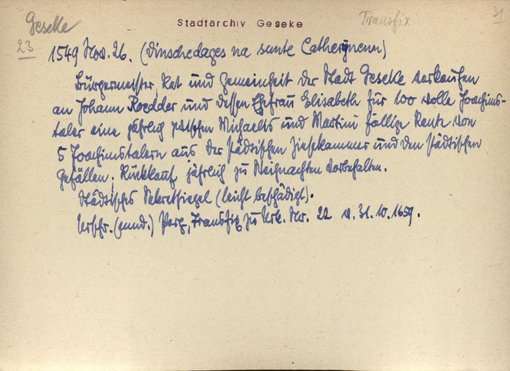 Geseke
Stadtarchiv Geseke
Transfix
23
1549 Nov. 26. (dinschedages na sunte Catherynenn)
Bürgermeister Rat und Gemeinheit der Stadt Geseke verkaufen
an Johann Roedder und dessen Ehefrau Elisabeth für 100 volle Joachims-
taler eine jährlich zwischen Michaelis und Martini fällige Rente von
5 Joachimstalern aus der städtischen Ziesekammer und den städtischen
Gefällen. Rückkauf jährlich zu Weihnachten vorbehalten.
Städtisches Sekretsiegel (leicht beschädigt).
Urschr. Perg., Transfix zu Urk. Nr. 22 v. 31.10.